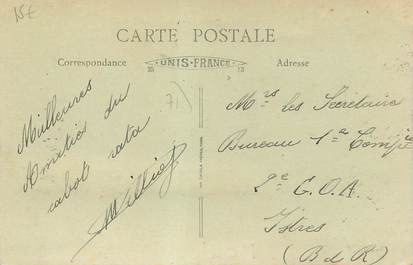 15€
CARTE POSTALE
Correspondance
UNIS-FRANCE
Adresse
71
Meilleures
Amitiés du
cabot rata
Mrs les Secrétaire
Bureau 1a Compie
2e G.O.A.
Istres
(B d R)